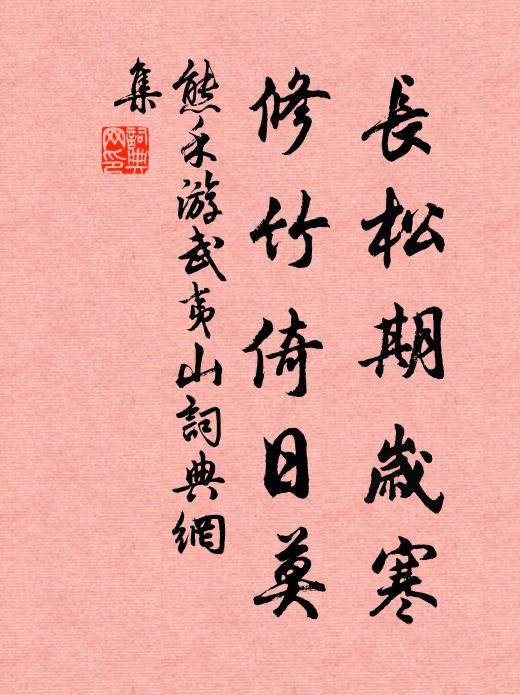 長松期歲寒
修竹倚日莫
熊禾游武夷山詞典網
集
詞典網印